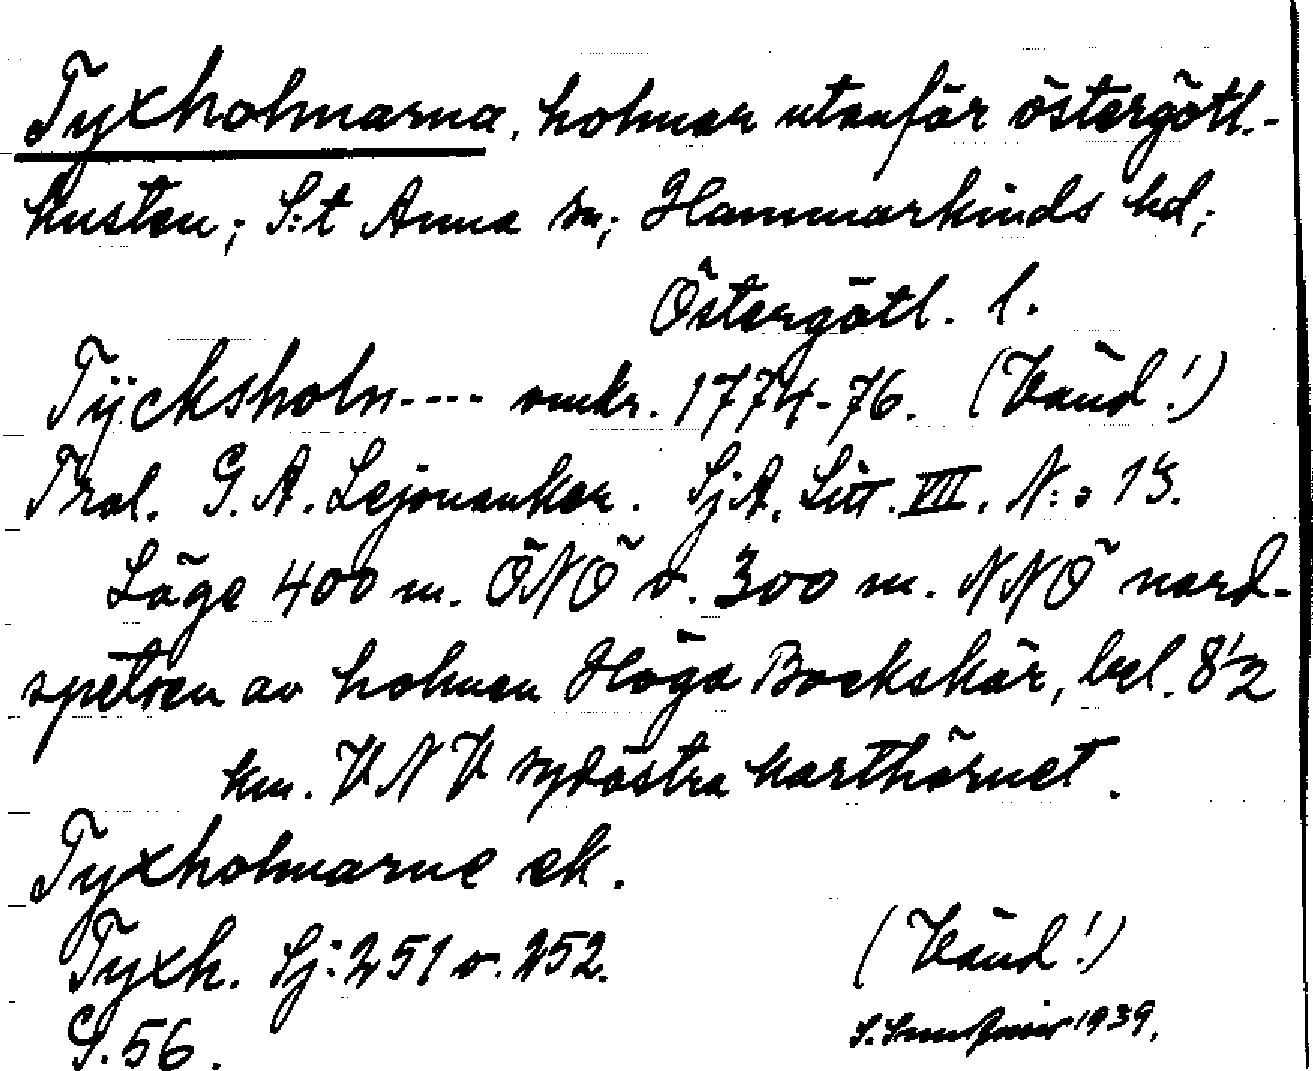 Tyxholmarna, holmar utanför östergötl.-
kusten; S:t Anna sn; Hammarkinds hd;
Östergötl. l.
Tÿcksholm---- omkr. 1774-76. (Vänd!)
Trol. G. A. Lejonanker. SjA. Litt. VII. N:o 13.
Läge 400 m. ÖNÖ o. 300 m. NNÖ nord-
spetsen av holmen Höga Bockskär, bel. 8 1/2
km. VNV sydöstra karthörnet.
Tyxholmarne ek.
Tyxh. Sj: 251 o. 252.
(Vänd!)
G. 56.
S. 1939.